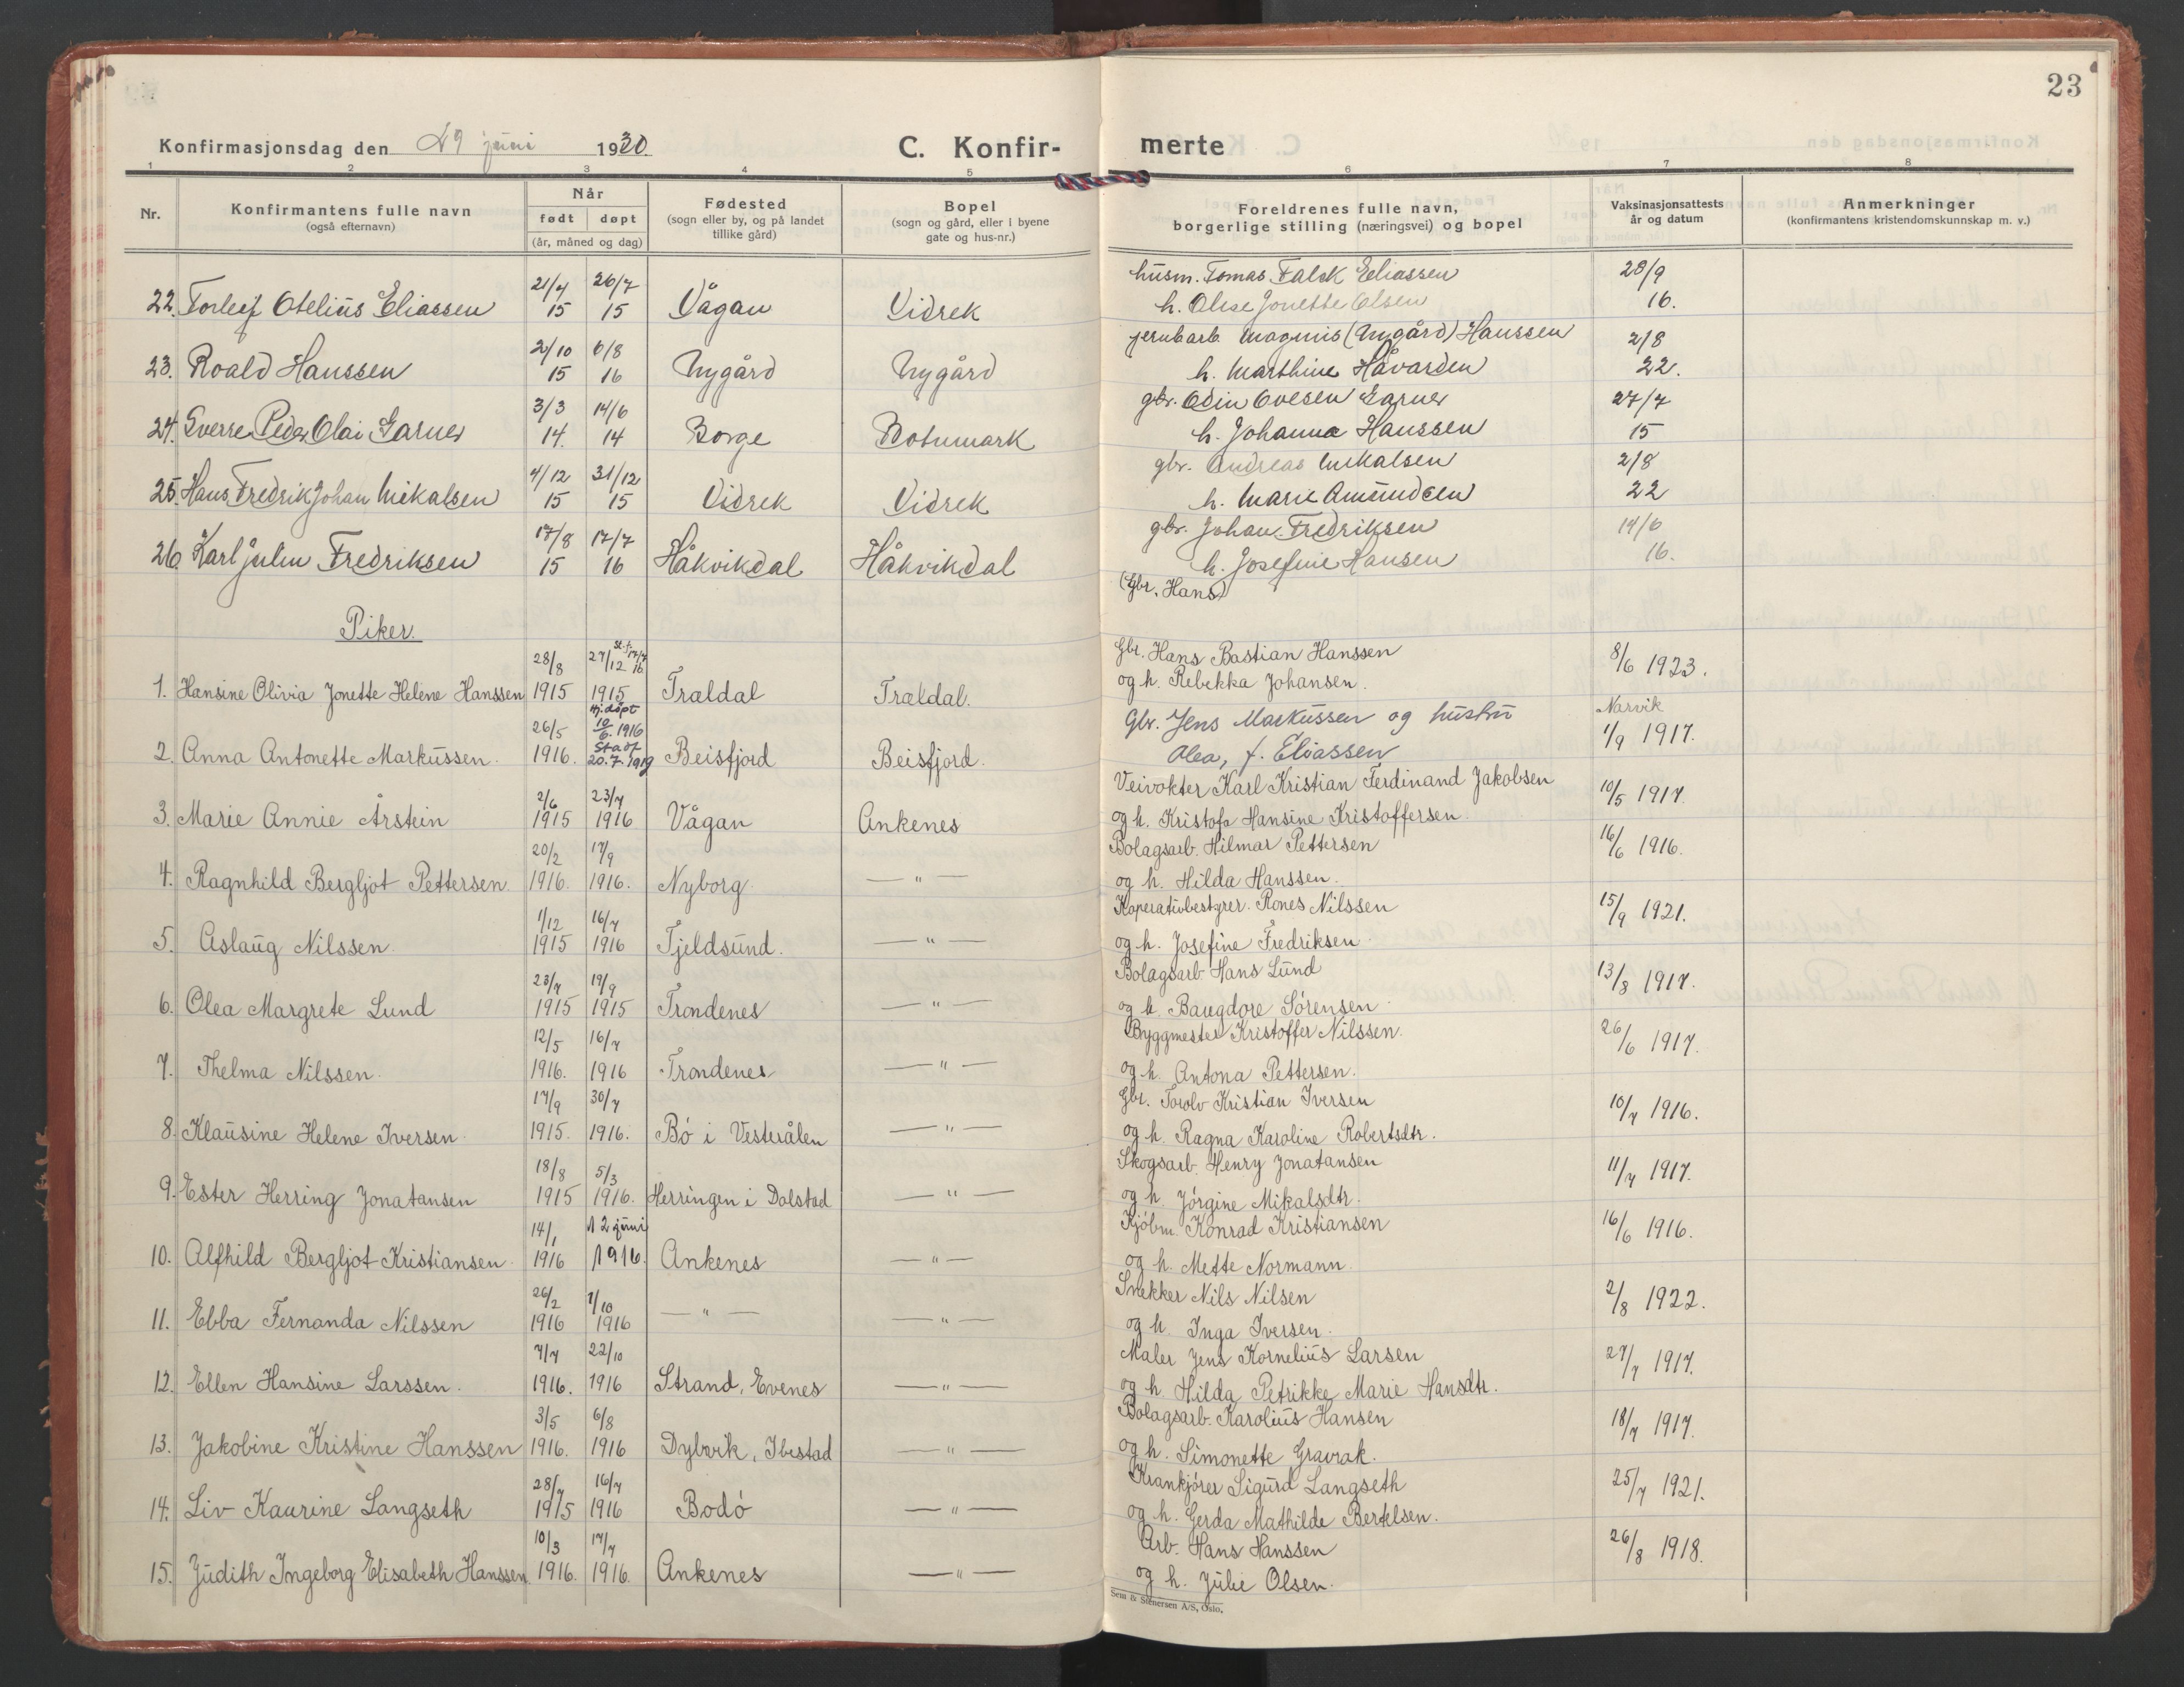 23
Konfirmasjonsdag den 29 juni 1930. C. Konfir- merte
1 2 3 4 5 6 7 8
Nr. Konfirmantens fulle navn (også efternavn) Når født døpt (år, måned og dag) Fødested (sogn eller by, og på landet tillike gård) Bopel (sogn og gård, eller i byene gate og hus-nr.) Foreldrenes fulle navn, borgerlige stilling (næringsvei) og bopel Vaksinasjonsattests år og datum Anmerkninger (konfirmantens kristendomskunnskap m. v.)
21/4 26/7 husm. Tomas Falck Eeliassen 28/9
22. Torleif Otelius Eliassen 15 15 Vågan Vidrek h. Olise Jonette Olsen 16.
2/10 6/8 jernbarb. Magnus (Nygård) Hanssen 2/8
23. Roald Hanssen 15 16 Nygård Nygård h. Marthine Håvarden 22.
3/3 14/6 gbr. Odin Ovesen Garnes 27/7
24. Sverre Peder Olai Garnes 14. 14 Borge Botnmark h. Johanna Hanssen 15
4/12 31/12 gbr. Andreas Mikalsen 2/8
25. Hans Fredrik Johan Mikalsen 15 15 Vidrek Vidrek h. Marie Amundsen 22
17/8 17/7 gbr. Johan Fredriksen 14/6
26. Karl Julin Fredriksen 15 16 Håkvikdal Håkvikdal h. Josefine Hansen 16.
(Gbr. Hans)
Piker.
28/8 27/12 St. f. 17/7 16 Gbr. Hans Bastian Hanssen 8/6 1923.
1. Hansine Olivia Jonette Helene Hanssen 1915 1915 Traldal Traldal. og h. Rebekka Johansen.
26/5 Hj. døpt 10/6. 1916 Gbr. Jens Markussen og hustru Narvik
2. Anna Antonette Markussen. 1916. Stadf 20.7.1919 Beisfjord Beisfjord. Olea, f. Eliassen 1/9 1917.
2/6 23/7 Veivokter Karl Kristian Ferdinand Jakobsen 10/5 1917.
3. Marie Annie Årstein 1915 1916 Vågan Ankenes og h. Kristofa Hansine Kristoffersen.
20/2 17/9 Bolagsarb. Hilmar Pettersen 16/6 1916.
4. Ragnhild Bergljot Pettersen. 1916. 1916. Nyborg. — " — og h. Hilda Hanssen.
1/12 16/7 Koperativbestyrer. Rones Nilssen 15/9 1921.
5. Aslaug Nilssen. 1915 1916 Tjeldsund. — " — og h. Josefine Fredriksen.
23/7 19/9 Bolagsarb Hans Lund 13/8 1917.
6. Olea Margrete Lund 1915 1915 Trondenes — " — og h. Baugdore Sørensen.
12/5 16/7 Byggmester Kristoffer Nilssen. 26/6 1917.
7. Thelma Nilssen. 1916. 1916 Trondenes — " — og h. Antona Pettersen.
17/9 30/7 Gbr. Torolv Kristian Iversen 10/7 1916.
8. Klausine Helene Iversen. 1915. 1916. Bó i Vesterålen — " — og h. Ragna Karoline Robertsdtr.
18/8 5/3 Skogsarb. Henry Jonatansen 11/7 1917.
9. Ester Herring Jonatansen 1915 1916. Herringen i Dolstad — " — og h. Jórgine Mikalsdtr.
14/1 12 juni Kjóbm. Konrad Kristiansen 16/6 1916.
10. Alfhild Bergljot Kristiansen. 1916 1916. Ankenes — " — og h. Mette Normann.
26/2 1/10 Snekker Nils Nilsen 2/8 1922.
11. Ebba Fernanda Nilssen 1916 1916 — " — — " — og h. Inga Iversen.
7/7 22/10 Maler Jens Kornelius Larsen 27/7 1917.
12. Ellen Hansine Larssen. 1916. 1916 Strand, Evenes — " — og h. Hilda Petrikke Marie Hansdtr.
3/5 6/8 Bolagsarb. Karolius Hansen 18/7 1917.
13. Jakobine Kristine Hanssen 1916. 1916 Dybvik, Ibestad — " — og h. Simonette Gravrak.
28/7 16/7 Krankjórer Sigurd Langseth 25/7 1921.
14. Liv Kaurine Langseth 1915 1916 Bodó — " — og h. Gerda Mathilde Bertelsen.
10/3 17/7 Arb. Hans Hanssen 26/8 1918.
15. Judith Ingeborg Elisabeth Hanssen 1916. 1916. Ankenes — " — og h. Julie Olsen.
Sem & Stenersen A/S, Oslo.